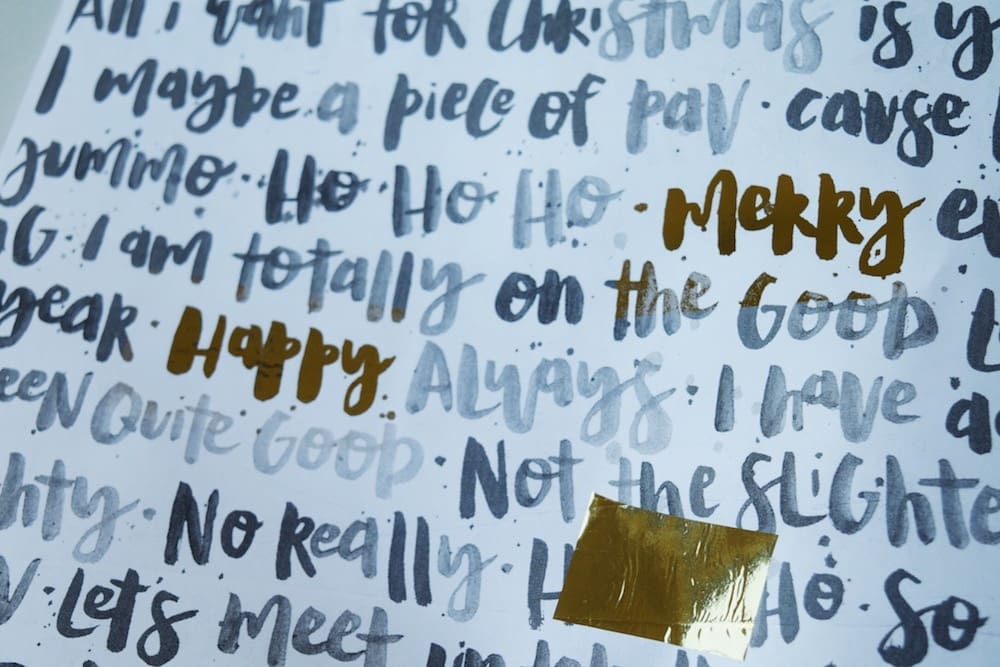 All i want for Christmas is y
I maybe a piece of pav · cause
jummo · Ho · Ho Ho · Merry
I am totally on the Good
year · Happy Always · I have a
Quite Good · Not the slighte
hty. No Really Ho · So
Let's Meet